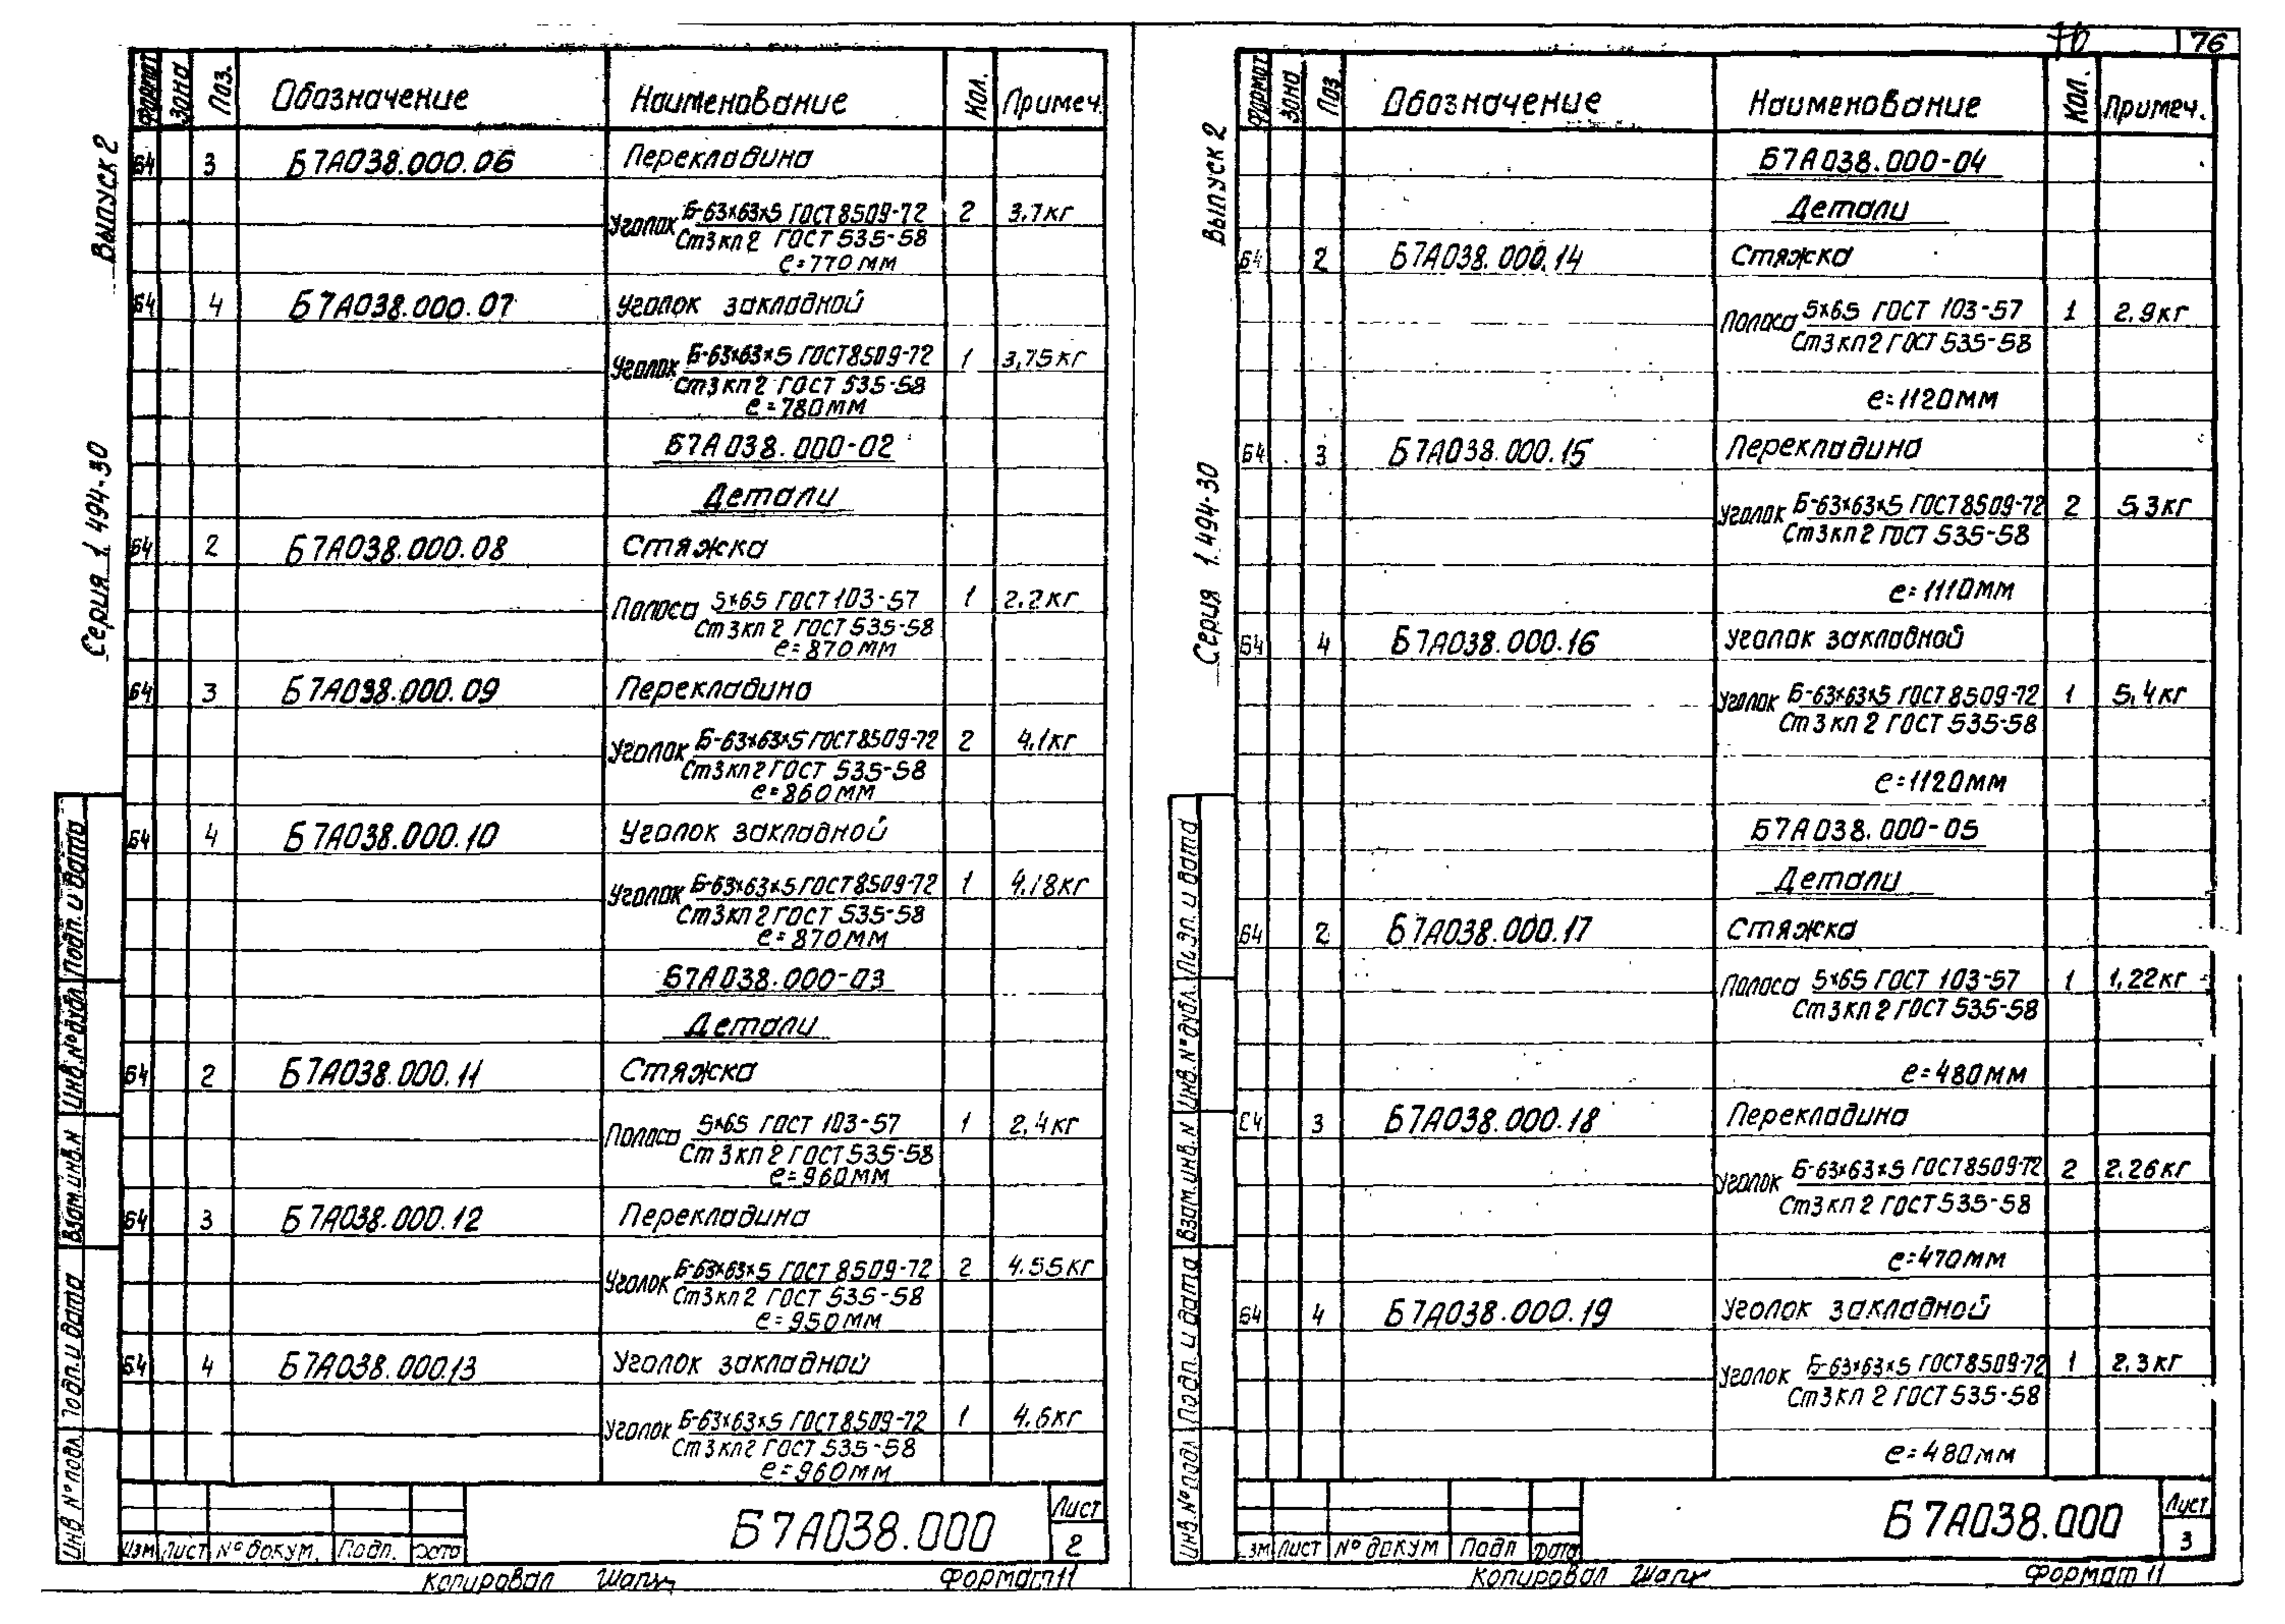 76
Выпуск 2
Серия 1.494-30
Формат Зона Поз. Обозначение Наименование Кол. Примеч.
Б4 3 Б7А038.000.06 Перекладина
Уголок Б-63х63х5 ГОСТ 8509-72 2 3,7кг
Ст3кп2 ГОСТ 535-58
е=770мм
Б4 4 Б7А038.000.07 Уголок закладной
Уголок Б-63х63х5 ГОСТ 8509-72 1 3,75кг
Ст3кп2 ГОСТ 535-58
е=780мм
Б7А038.000-02
Детали
Б4 2 Б7А038.000.08 Стяжка
Полоса 5х65 ГОСТ 103-57 1 2.2кг
Ст3кп2 ГОСТ 535-58
е=870мм
Б4 3 Б7А038.000.09 Перекладина
Уголок Б-63х63х5 ГОСТ 8509-72 2 4.1кг
Ст3кп2 ГОСТ 535-58
е=860мм
Б4 4 Б7А038.000.10 Уголок закладной
Уголок Б-63х63х5 ГОСТ 8509-72 1 4.18кг
Ст3кп2 ГОСТ 535-58
е=870мм
Б7А038.000-03
Детали
Б4 2 Б7А038.000.11 Стяжка
Полоса 5х65 ГОСТ 103-57 1 2,4кг
Ст3кп2 ГОСТ 535-58
е=960мм
Б4 3 Б7А038.000.12 Перекладина
Уголок Б-63х63х5 ГОСТ 8509-72 2 4.55кг
Ст3кп2 ГОСТ 535-58
е=950мм
Б4 4 Б7А038.000.13 Уголок закладной
Уголок Б-63х63х5 ГОСТ 8509-72 1 4.6кг
Ст3кп2 ГОСТ 535-58
е=960мм
Инв № подл. Подп. и дата Взам.инв.N Инв.№ дубл. Подп. и дата
Изм Лист № докум. Подп. Дата
Б7А038.000
Лист
2
Копировал Формат 11
Выпуск 2
Серия 1.494-30
Формат Зона Поз Обозначение Наименование Кол. Примеч.
Б7А038.000-04
Детали
Б4 2 Б7А038.000.14 Стяжка
Полоса 5х65 ГОСТ 103-57 1 2.9кг
Ст3кп2 ГОСТ 535-58
е=1120мм
Б4 3 Б7А038.000.15 Перекладина
Уголок Б-63х63х5 ГОСТ 8509-72 2 5,3кг
Ст3кп2 ГОСТ 535-58
е=1110мм
Б4 4 Б7А038.000.16 Уголок закладной
Уголок Б-63х63х5 ГОСТ 8509-72 1 5,4кг
Ст3кп2 ГОСТ 535-58
е=1120мм
Б7А038.000-05
Детали
Б4 2 Б7А038.000.17 Стяжка
Полоса 5х65 ГОСТ 103-57 1 1,22кг
Ст3кп2 ГОСТ 535-58
е=480мм
Б4 3 Б7А038.000.18 Перекладина
Уголок Б-63х63х5 ГОСТ 8509-72 2 2.26кг
Ст3кп2 ГОСТ 535-58
е=470мм
Б4 4 Б7А038.000.19 Уголок закладной
Уголок Б-63х63х5 ГОСТ 8509-72 1 2.3кг
Ст3кп2 ГОСТ 535-58
е=480мм
Инв.№ подл Подп. и дата Взам.инв.N Инв.№ дубл. Подп. и дата
Изм Лист № докум Подп Дата
Б7А038.000
Лист
3
Копировал Формат 11